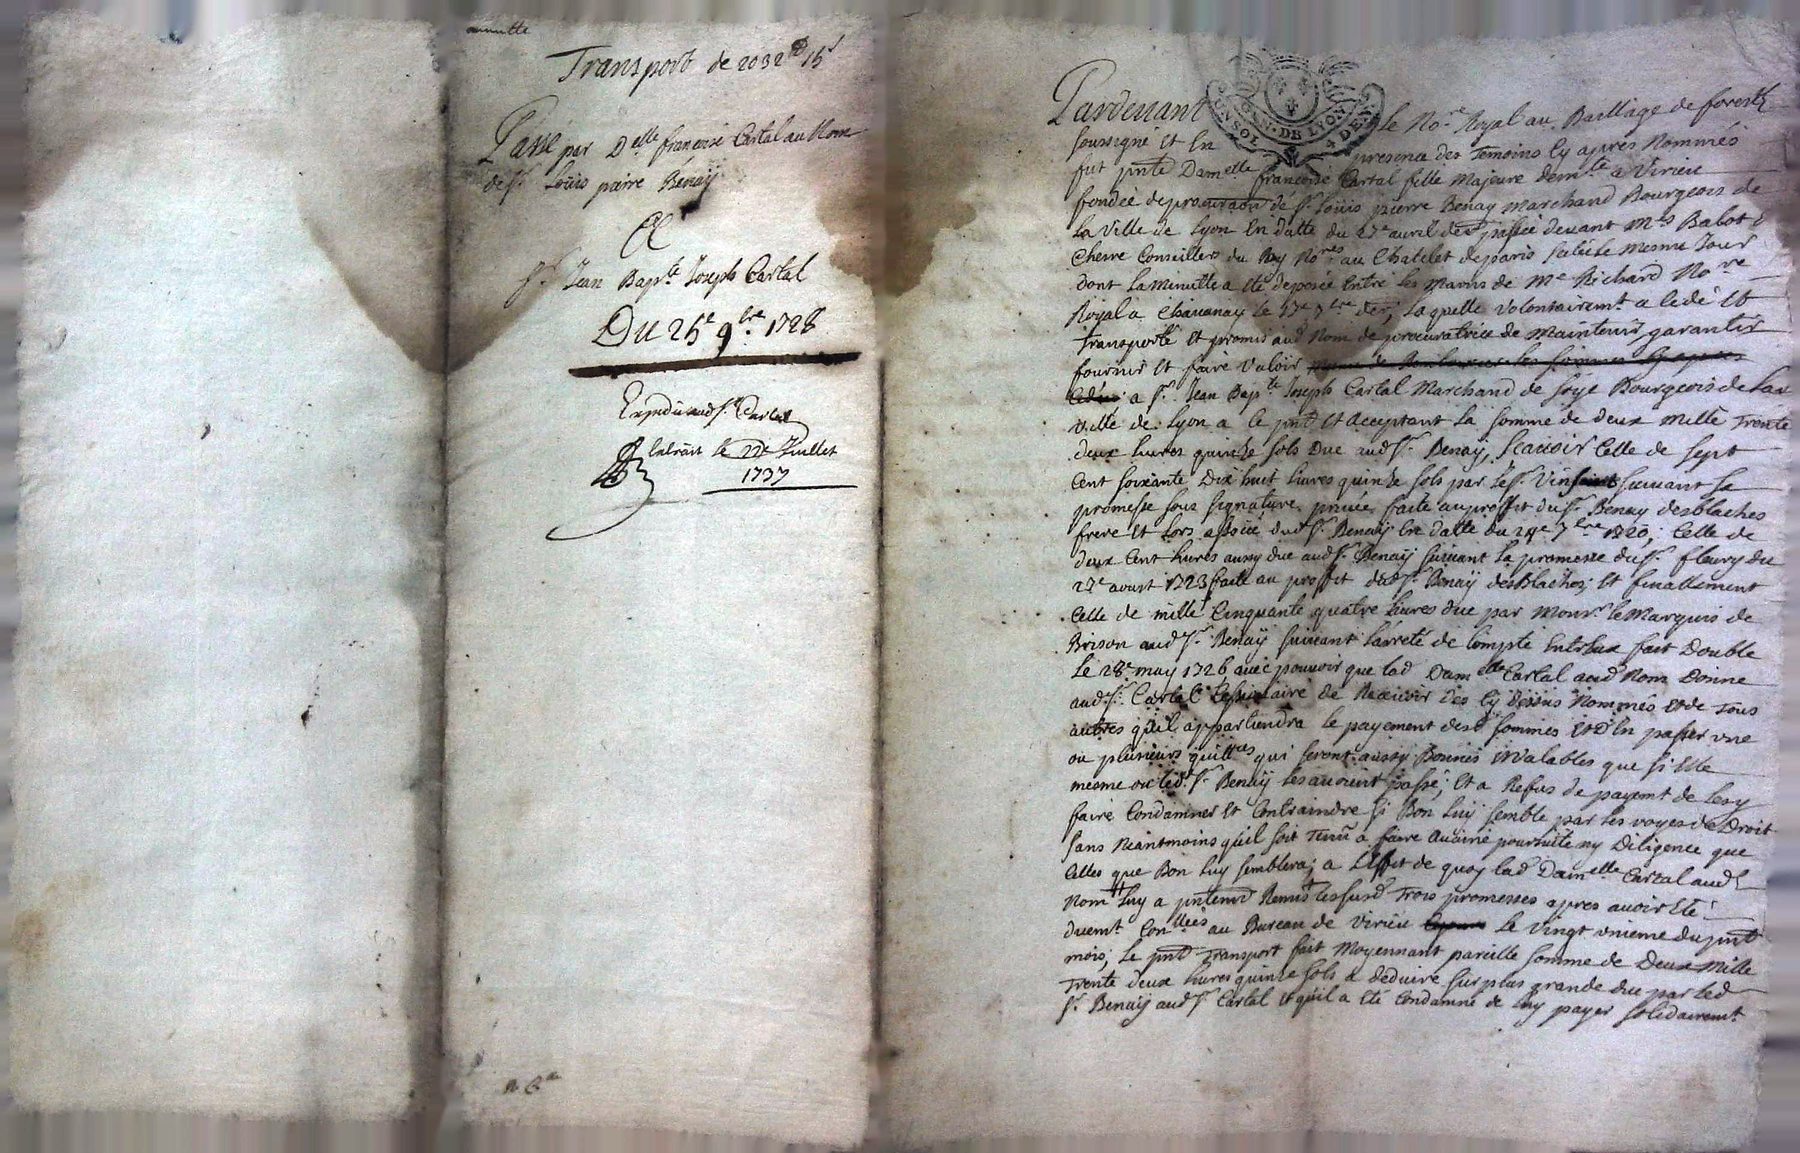 minutte
Transport de 2032 ₶ 15 s
Passé par Delle francoise Cartal au Nom
de sr. Loüis pierre Benaÿ
A
Sr. Jean Bapte. Joseph Cartal
Du 25e 9bre. 1728
Expedié aud sr. Cartal
Extrait le 22e Juillet
1737
GEN. DE LYON
UN SOL 4 DEN
Pardevant le Nore. Royal au Bailliage de forest
soussigné Et En presence des Temoins Cy apres Nommés
fut pnte Damelle francoise Cartal fille Majeure demte a Virieu
fondée de procuraon de sr. Loüis pierre Benay Marchand Bourgeois de
La Ville de Lyon En datte du 27e avril der passée devant Mes Balot &
Cherre Conseillers du Roy Nores au Chatelet de paris scelée le mesme Jour
dont La Minutte a Eté deposée Entre les Mains de Me Richard Nore
Royal a Chavanay le 7bre der, Laquelle Volontairemt a Cedé Et
Transporté Et promis aud Nom de procuratrice de Maintenir, garantir
fournir Et faire Valoir
a sr. Jean Bapte Joseph Cartal Marchand de soÿe Bourgeois de Lad
ville de Lyon a ce pnt Et Acceptant La somme de deux mille Trente
deux Livres quinze sols Due aud sr. Benaÿ, scavoir Celle de sept
Cent soixante Dix huit Livres quinze sols par Le sr. suivant sa
promesse sous signature privée faite au proffit du sr. Benay desblaches
frere Et Lors associé dud sr. Benaÿ En datte du 24e 7bre 1720; Celle de
deux Cent Livres aussy due aud sr. Benaÿ suivant La promesse du sr. fleury du
27e aoust 1723 faite au proffit dud sr. Benaÿ desBlaches; Et finallement
Celle de mille Cinquante quatre Livres due par Monsr. le Marquis de
Brison aud sr. Benaÿ suivant L'arreté de Compte Entr'eux fait Double
Le 28e may 1726 avec pouvoir que lad Damelle Cartal aud Nom Donne
aud sr. Cartal Cessionaire de Recevoir des Cy dessus Nommés Et de Tous
autres qu'il appartiendra le payement desd sommes Et d'En passer une
ou plusieurs quittces qui seront aussy Bonnes Et Valables que si Elle
mesme ou led. sr. Benaÿ Les avoient passé; Et a Refus de payemt de Les y
faire Condamner Et Contraindre si Bon Luy semble par Les voyes de Droit
sans Neantmoins qu'il soit Tenu a faire Aucune poursuitte ny Diligence que
Celles que Bon Luy semblera; a L'Effet de quoy lad Damelle Cartal aud
Nom Luy a Remis Les susd Trois promesses apres avoir Eté
duemt. Conllées au Bureau de Virieu Le Vingt unieme du pnt
mois; Le pnt Transport fait Moyennant pareille somme de Deux Mille
Trente deux Livres quinze sols a deduire sur plus grande due par led
sr. Benaÿ aud sr. Cartal Et qu'il a Eté Condamné de Luy payer solidairemt.